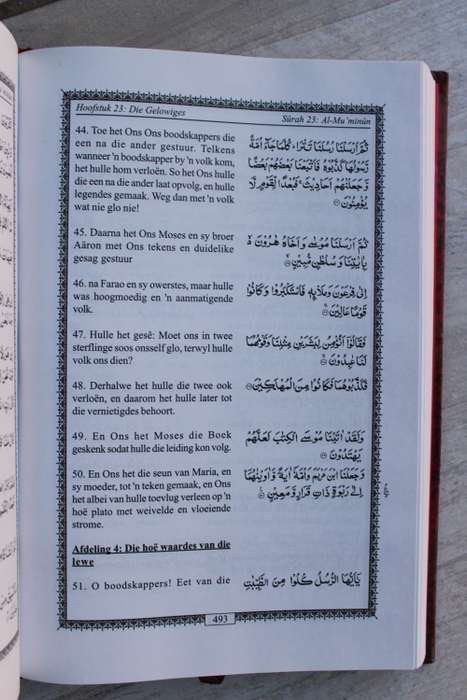 Hoofstuk 23: Die Gelowiges
Sūrah 23: Al-Mu'minūn
44. Toe het Ons Ons boodskappers die
een na die ander gestuur. Telkens
wanneer 'n boodskapper by 'n volk kom,
het hulle hom verloën. So het Ons hulle
die een na die ander laat opvolg, en hulle
legendes gemaak. Weg dan met 'n volk
wat nie glo nie!
ثُمَّ اَرْسَلْنَا رُسُلَنَا تَتْرَا ؕ كُلَّمَا جَآءَ اُمَّةً
رَّسُوْلُهَا كَذَّبُوْهُ فَاَتْبَعْنَا بَعْضَهُمْ بَعْضًا
وَّجَعَلْنٰهُمْ اَحَادِيْثَ ۚ فَبُعْدًا لِّقَوْمٍ لَّا
يُؤْمِنُوْنَ
45. Daarna het Ons Moses en sy broer
Aäron met Ons tekens en duidelike
gesag gestuur
ثُمَّ اَرْسَلْنَا مُوْسٰى وَ اَخَاهُ هٰرُوْنَ ۙ
بِاٰيٰتِنَا وَ سُلْطٰنٍ مُّبِيْنٍ
46. na Farao en sy owerstes, maar hulle
was hoogmoedig en 'n aanmatigende
volk.
اِلٰى فِرْعَوْنَ وَمَلَا۟ئِهٖ فَاسْتَكْبَرُوْا وَ كَانُوْا
قَوْمًا عَالِيْنَ
47. Hulle het gesê: Moet ons in twee
sterflinge soos onsself glo, terwyl hulle
volk ons dien?
فَقَالُوْۤا اَنُؤْمِنُ لِبَشَرَيْنِ مِثْلِنَا وَقَوْمُهُمَا
لَنَا عٰبِدُوْنَ
48. Derhalwe het hulle die twee ook
verloën, en daarom het hulle later tot
die vernietigdes behoort.
فَكَذَّبُوْهُمَا فَكَانُوْا مِنَ الْمُهْلَكِيْنَ
49. En Ons het Moses die Boek
geskenk sodat hulle die leiding kon volg.
وَلَقَدْ اٰتَيْنَا مُوْسَى الْكِتٰبَ لَعَلَّهُمْ
يَهْتَدُوْنَ
50. En Ons het die seun van Maria, en
sy moeder, tot 'n teken gemaak, en Ons
het albei van hulle toevlug verleen op 'n
hoë plato met weivelde en vloeiende
strome.
وَجَعَلْنَا ابْنَ مَرْيَمَ وَاُمَّهٗۤ اٰيَةً وَّاٰوَيْنٰهُمَاۤ
اِلٰى رَبْوَةٍ ذَاتِ قَرَارٍ وَّمَعِيْنٍ
Afdeling 4: Die hoë waardes van die
lewe
51. O boodskappers! Eet van die
يٰۤاَيُّهَا الرُّسُلُ كُلُوْا مِنَ الطَّيِّبٰتِ
493